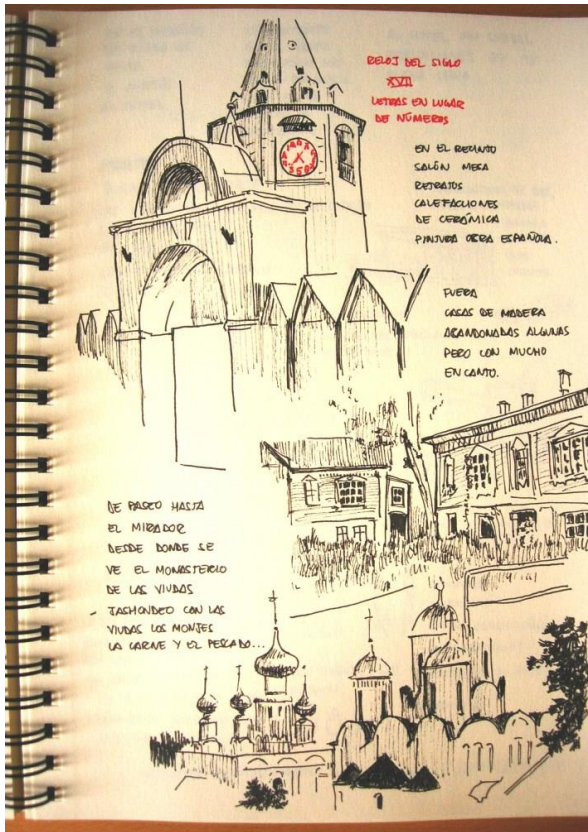 RELOJ DEL SIGLO
XVII
LETRAS EN LUGAR
DE NÚMEROS
EN EL RECINTO
SALÓN MESA
RETRATOS
CALEFACCIONES
DE CERÁMICA
PINTURA OBRA ESPAÑOLA.
FUERA
CASAS DE MADERA
ABANDONADAS ALGUNAS
PERO CON MUCHO
ENCANTO.
DE PASEO HASTA
EL MIRADOR
DESDE DONDE SE
VE EL MONASTERIO
DE LAS VIUDAS
CON LAS
VIUDAS LOS MONJES
LA CARNE Y EL PESCADO...